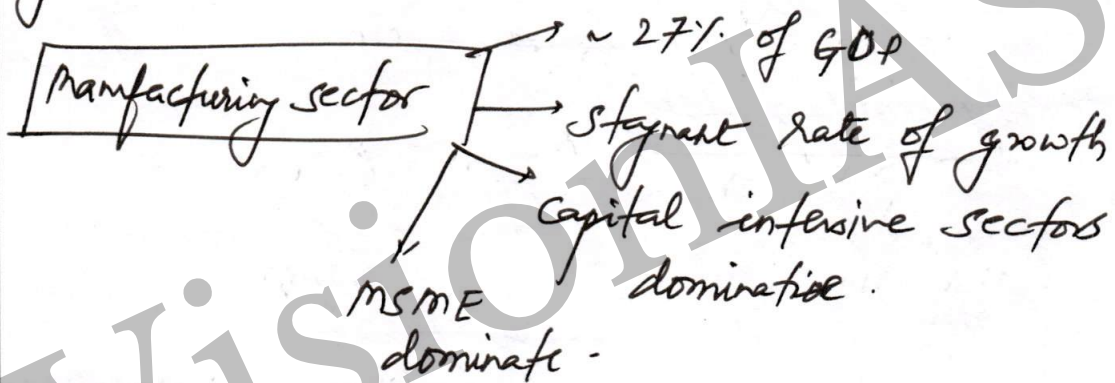 ~ 27% of GDP
Manfacturing sector
Stagnant rate of growth
Capital intensive sectors
dominatioe.
MSME
dominate.
VisionIAS